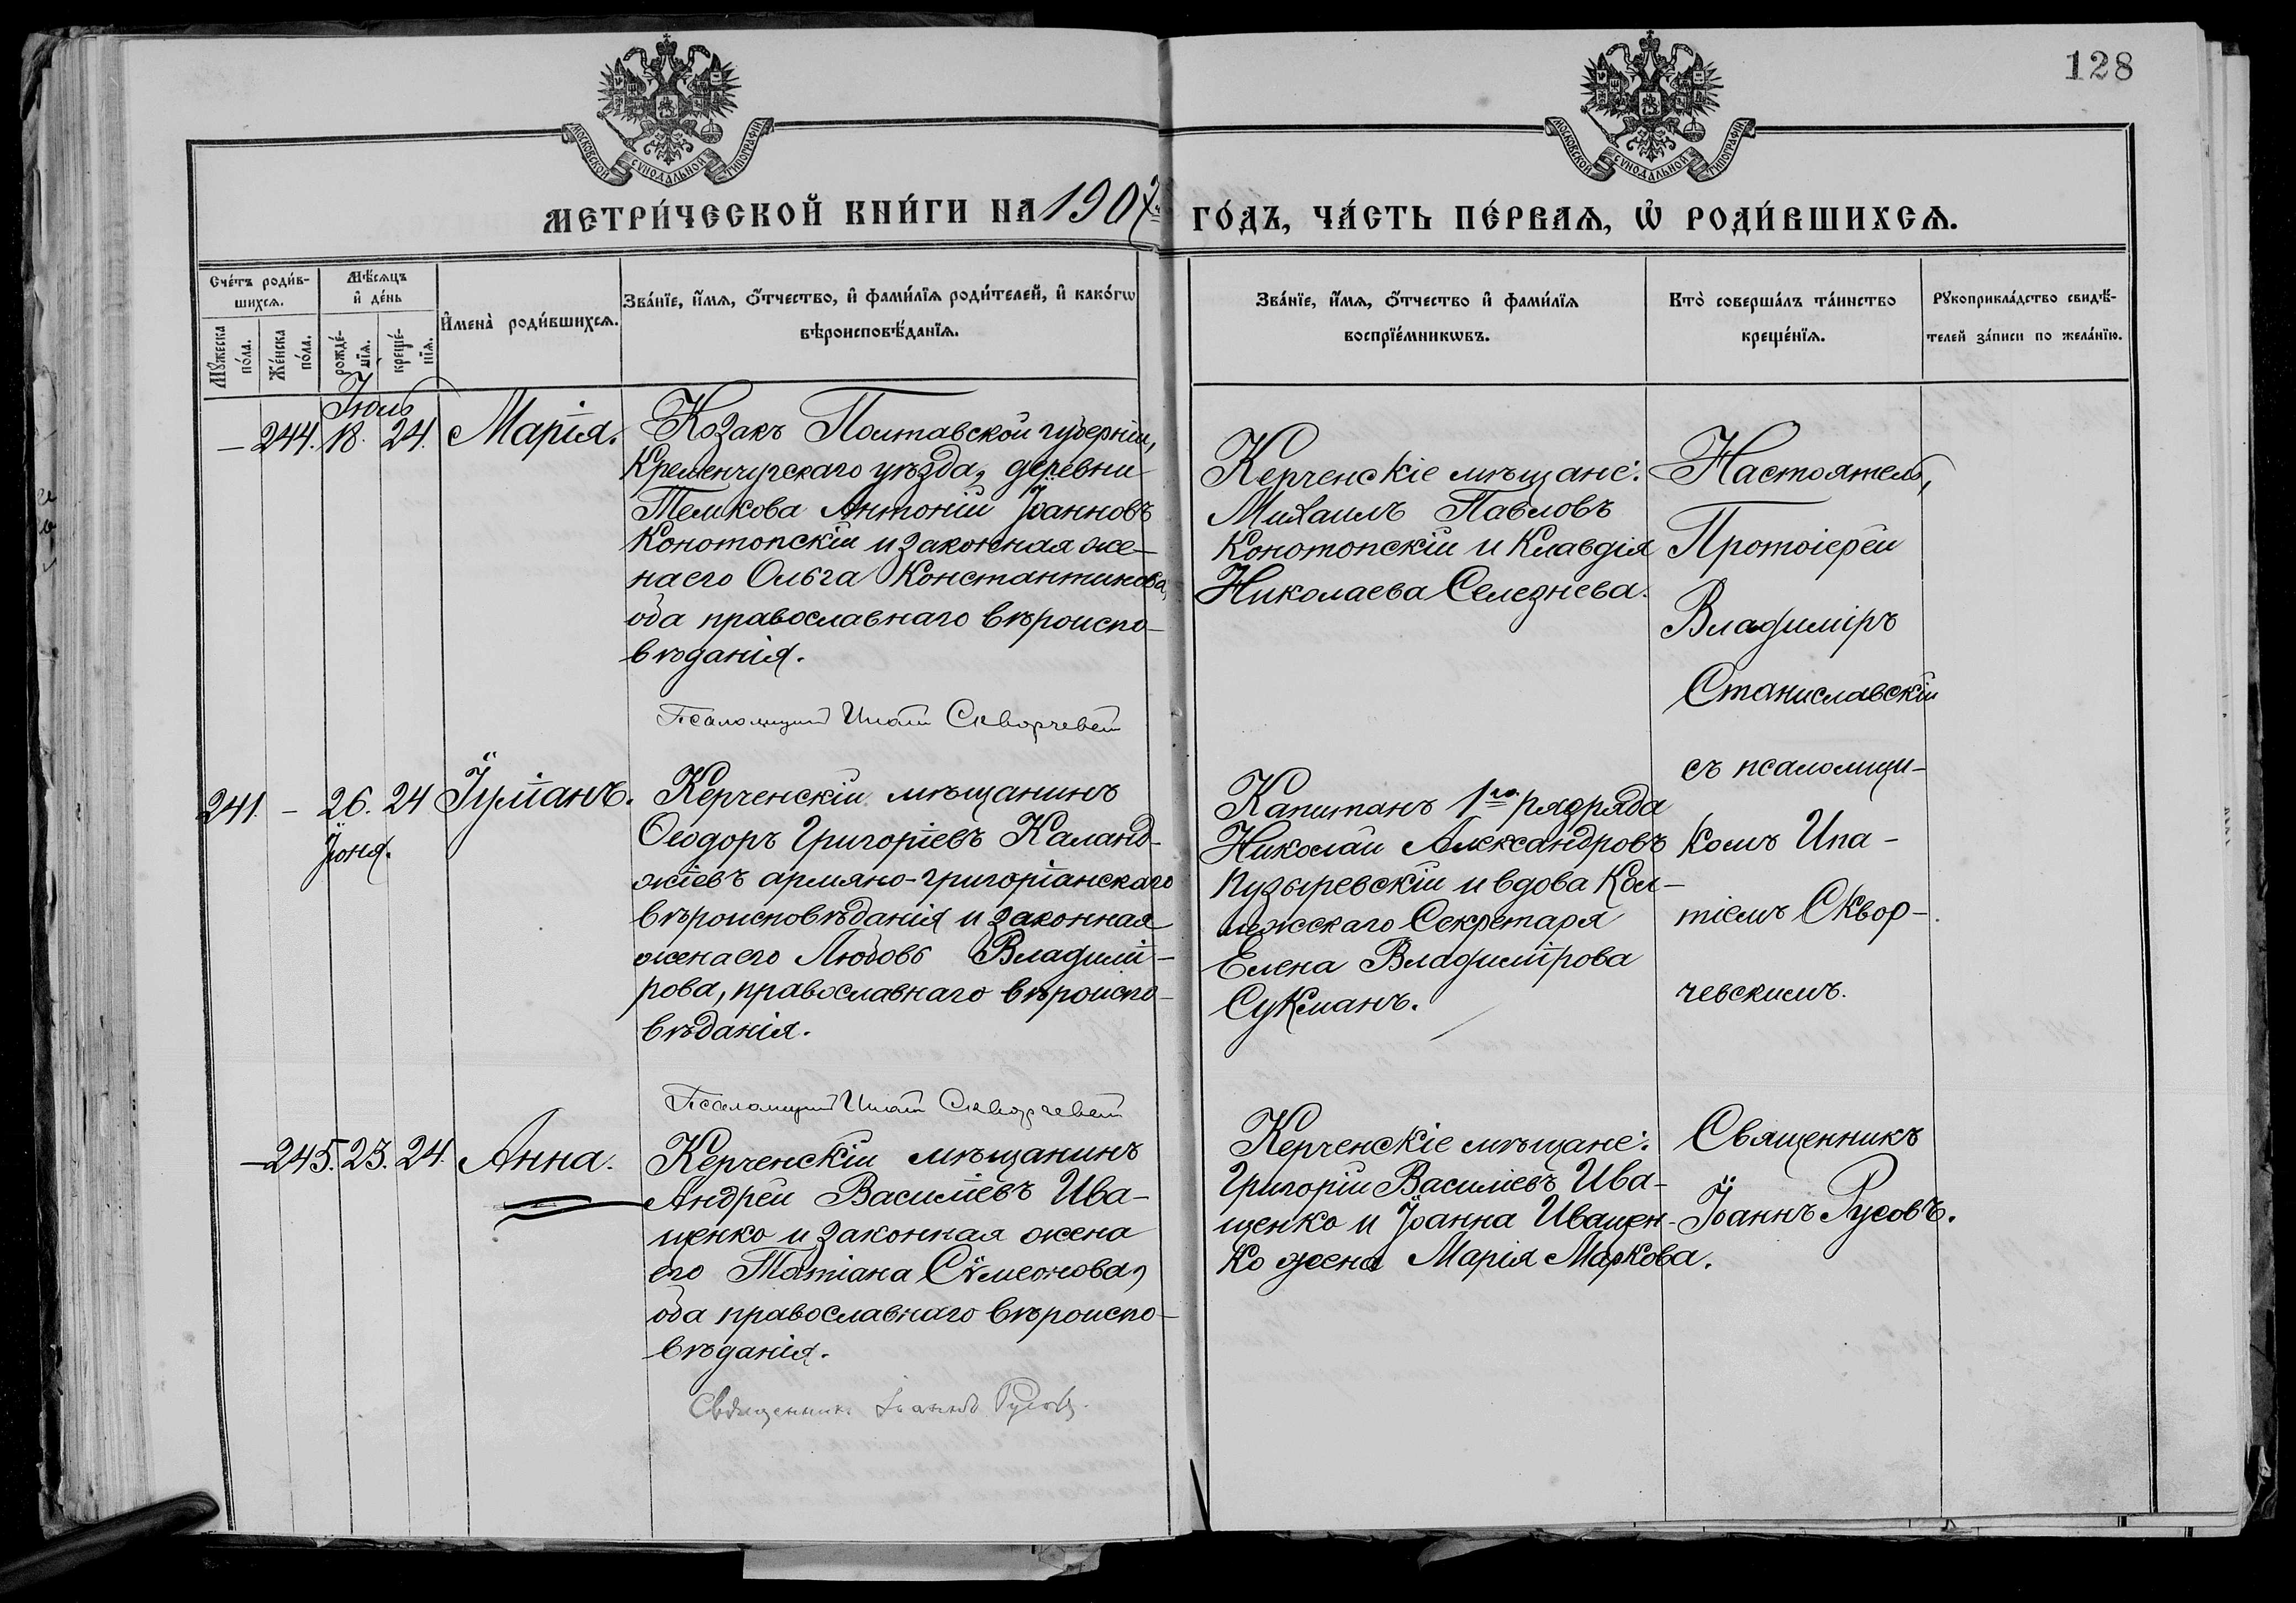 128
МОСКОВСКОЙ СѴНОДАЛЬНОЙ ТИПОГРАФІИ
МОСКОВСКОЙ СѴНОДАЛЬНОЙ ТИПОГРАФІИ
МЕТРИ́ЧЕСКОЙ КНИ́ГИ НА 1907 й ГО́ДЪ, ЧА́СТЬ ПЕ́РВАѦ, Ѡ҆ РОДИ́ВШИХСѦ.
Сче́тъ роди́в-
шихсѧ.
Мꙋ́жеска
по́ла.
Же́нска
по́ла.
Мѣ́сѧцъ
и҆ де́нь
рожде́-
нїѧ.
креще́-
нїѧ.
И҆мена̀ роди́вшихсѧ.
Зва́нїе, и҆́мѧ, ѻ҆́тчество, и҆ фами́лїѧ роди́телей, и҆ како́гѡ
вѣроисповѣ́данїѧ.
Зва́нїе, и҆́мѧ, ѻ҆́тчество и҆ фами́лїѧ
воспрїе́мникѡвъ.
Кто̀ соверша́лъ та́инство
креще́нїѧ.
Рꙋкоприкла́дство свидѣ́-
телей за́писи по жела́нїю.
Іюль
— 244. 18. 24. Марія.
Козакъ Полтавской губерніи,
Кременчугскаго уѣзда, деревни
Темкова Антоній Іоанновъ
Конотопскій и законная же-
на его Ольга Константинова,
оба православнаго вѣроиспо-
вѣданія.
Псаломщикъ Ипатій Скворчевскій
Керченскіе мѣщане:
Михаилъ Павловъ
Конотопскій и Клавдія
Николаева Селезнева.
Настоятель,
Протоіерей
Владиміръ
Станиславскій
съ псаломщи-
комъ Ипа-
тіемъ Сквор-
чевскимъ.
241. — 26. 24 Іуліанъ.
Іюня.
Керченскій мѣщанинъ
Ѳеодоръ Григоріевъ Каланд-
жіевъ армяно-григоріанскаго
вѣроисповѣданія и законная
жена его Любовь Владимі-
рова, православнаго вѣроиспо-
вѣданія.
Псаломщикъ Ипатій Скворчевскій
Капитанъ 1го рязряда
Николай Александровъ
Пузыревскій и вдова Кол-
лежскаго Секретаря
Елена Владимірова
Сукманъ.
— 245. 23. 24. Анна.
Керченскій мѣщанинъ
Андрей Василіевъ Ива-
щенко и законная жена
его Татіана Сѵмеонова,
оба православнаго вѣроиспо-
вѣданія.
Священникъ Іоаннъ Русовъ.
Керченскіе мѣщане:
Григорій Василіевъ Ива-
щенко и Іоанна Иващен-
ко жена Марія Маркова.
Священникъ
Іоаннъ Русовъ.